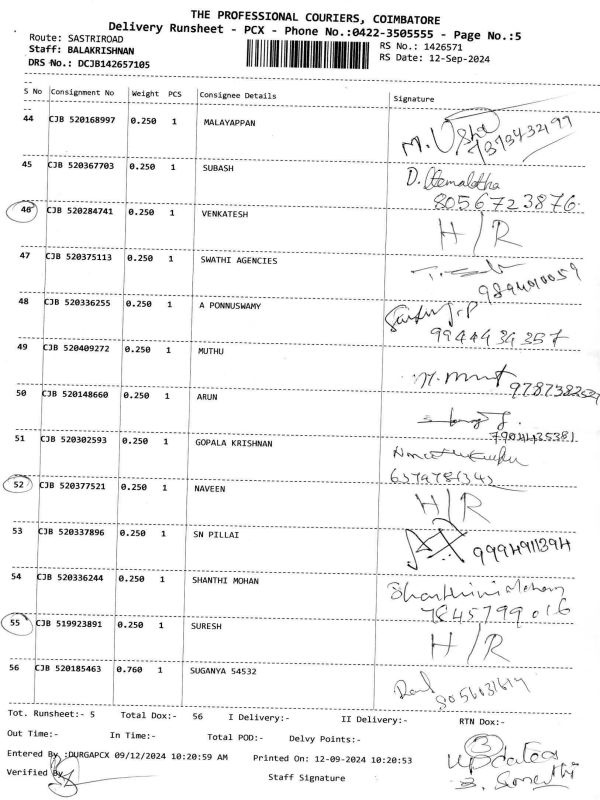 THE PROFESSIONAL COURIERS, COIMBATORE
Delivery Runsheet - PCX - Phone No.:0422-3505555 - Page No.:5
Route: SASTRIROAD
RS No.: 1426571
Staff: BALAKRISHNAN
RS Date: 12-Sep-2024
DRS No.: DCJB142657105
S No Consignment No Weight PCS Consignee Details Signature
44 CJB 520168997 0.250 1 MALAYAPPAN M. Usha
45 CJB 520367703 0.250 1 SUBASH D. Hemalatha
8056723876.
46 CJB 520284741 0.250 1 VENKATESH H/R
47 CJB 520375113 0.250 1 SWATHI AGENCIES
9894010059
48 CJB 520336255 0.250 1 A PONNUSWAMY
9944434357
49 CJB 520409272 0.250 1 MUTHU
50 CJB 520148660 0.250 1 ARUN
51 CJB 520302593 0.250 1 GOPALA KRISHNAN
52 CJB 520377521 0.250 1 NAVEEN H/R
53 CJB 520337896 0.250 1 SN PILLAI
54 CJB 520336244 0.250 1 SHANTHI MOHAN Shanthini Mohan
7845799016
55 CJB 519923891 0.250 1 SURESH H/R
56 CJB 520185463 0.760 1 SUGANYA 54532
Tot. Runsheet:- 5 Total Dox:- 56 I Delivery:- II Delivery:- RTN Dox:-
Out Time:- In Time:- Total POD:- Delvy Points:- 3
Entered By :DURGAPCX 09/12/2024 10:20:59 AM Printed On: 12-09-2024 10:20:53 updated
Verified By Staff Signature